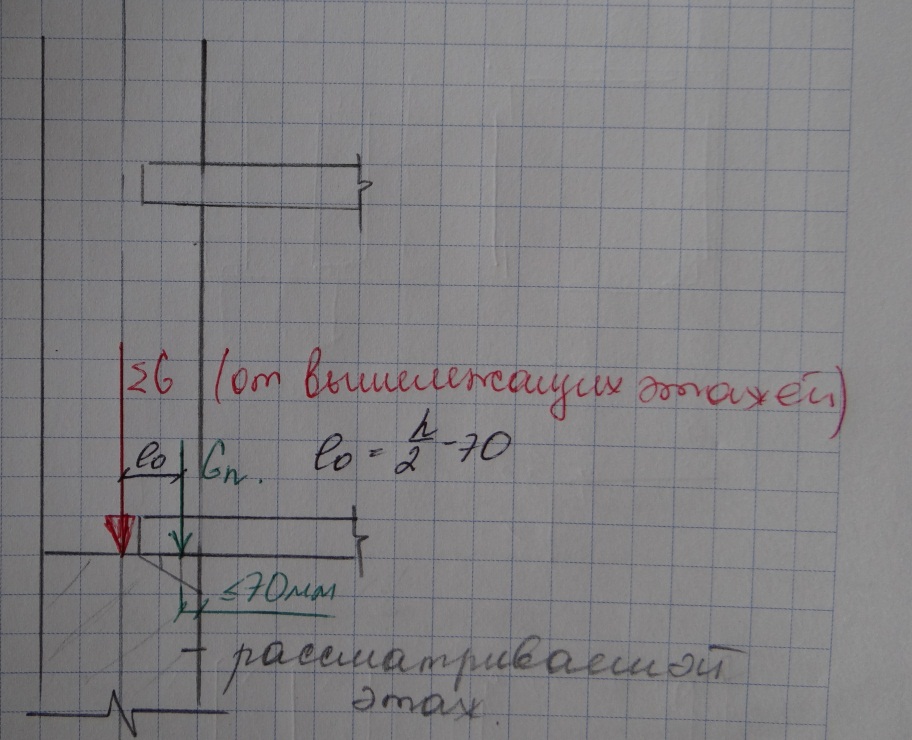 ΣG (от вышележащих этажей)
e₀ Gп. e₀ = h/2 - 70
≤70мм
рассматриваемый
этаж.